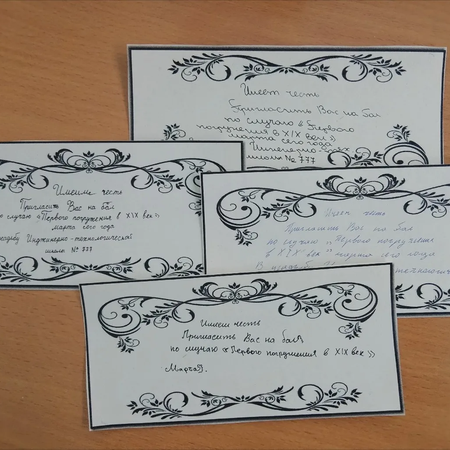 Имеет честь
Пригласить Вас на бал
по случаю «Первого
погружения в XIX век»
марта сего года
школы № 777
Имеем честь
Пригласить Вас на бал
по случаю «Первого погружения в XIX век»
марта сего года
усадьбу Инженерно-технологической
школы № 777
честь
Пригласить Вас на бал
по случаю "Первого погружения
в XIX век" марта сего года
В усадьбе
Имеем честь
Пригласить Вас на бал
по случаю «Первого погружения в XIX век»
Марта